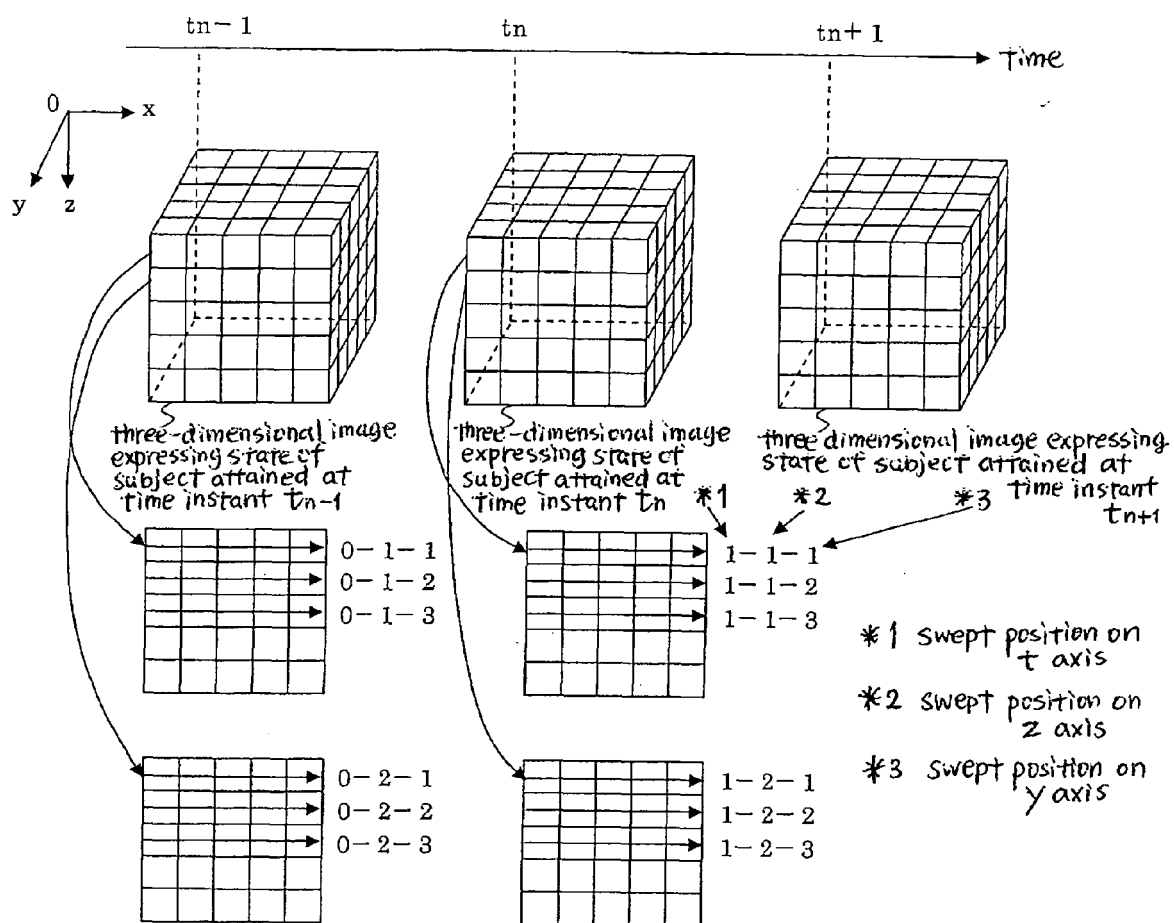 tn-1
tn
tn+1
Time
0
x
y
z
three-dimensional image
expressing state of
subject attained at
time instant tn-1
three-dimensional image
expressing state of
subject attained at
time instant tn
three dimensional image expressing
state of subject attained at
time instant
tn+1
*1
*2
*3
0-1-1
0-1-2
0-1-3
1-1-1
1-1-2
1-1-3
*1 swept position on
t axis
*2 swept position on
z axis
*3 swept position on
y axis
0-2-1
0-2-2
0-2-3
1-2-1
1-2-2
1-2-3